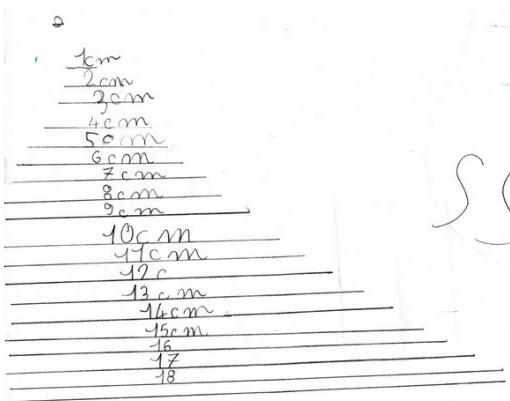 1cm
2cm
3cm
4cm
5cm
6cm
7cm
8cm
9cm
10cm
11cm
12c
13cm
14cm
15cm
16
17
18